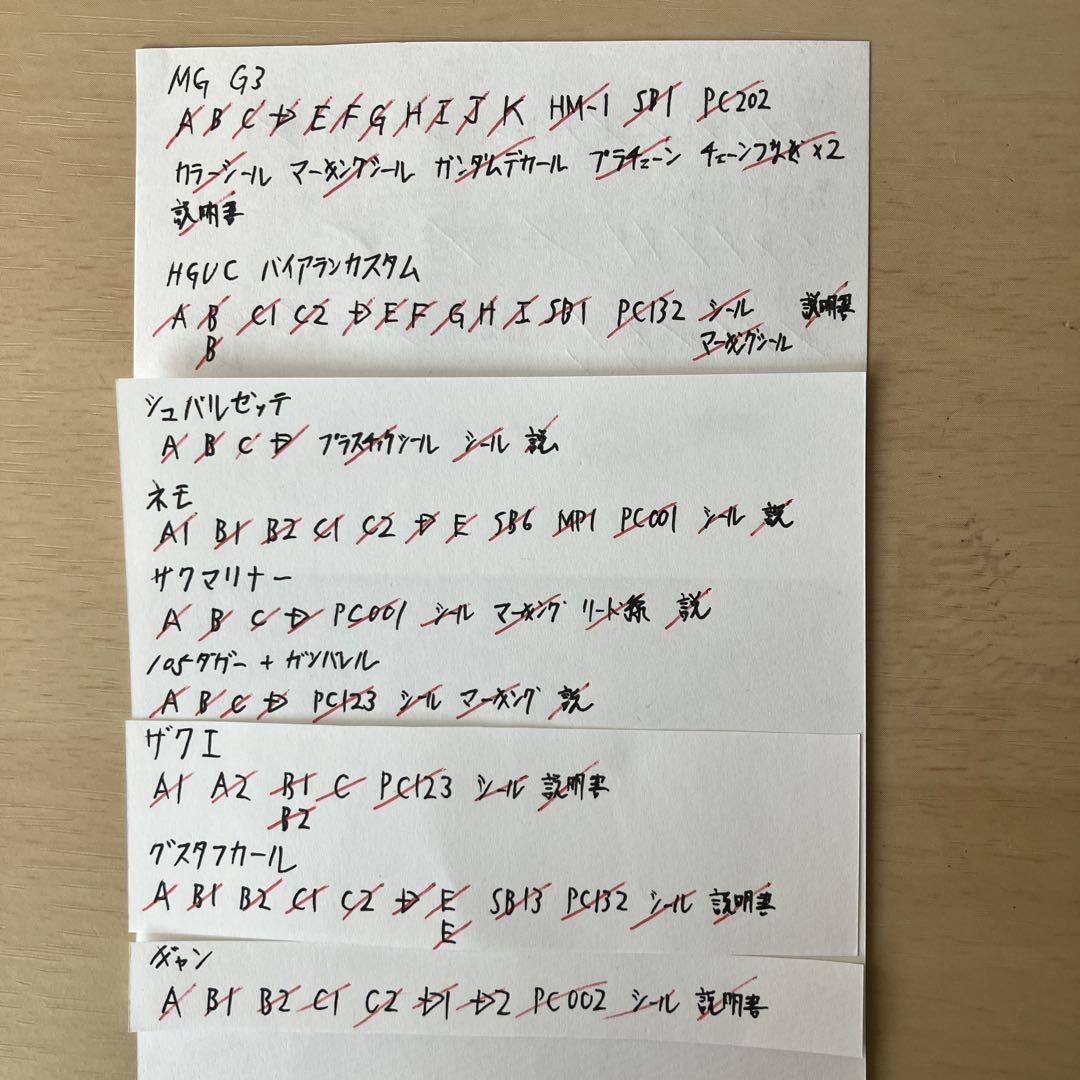 MG G3
A B C D E F G H I J K HM-1 SB1 PC202
カラーシール マーキングシール ガンダムデカール プラチェーン チェーンつなぎ×2
説明書
HGUC バイアランカスタム
A B C1 C2 D E F G H I SB1 PC132 シール 説明書
B マーキングシール
シュバルゼッテ
A B C D プラスチックシール シール 説
ネモ
A1 B1 B2 C1 C2 D E SB6 MP1 PC001 シール 説
ザクマリナー
A B C D PC001 シール マーキング リード線 説
105ダガー+ガンバレル
A B C D PC123 シール マーキング 説
ザクI
A1 A2 B1 C PC123 シール 説明書
B2
グスタフカール
A B1 B2 C1 C2 D E SB13 PC132 シール 説明書
E
ギャン
A B1 B2 C1 C2 D1 D2 PC002 シール 説明書